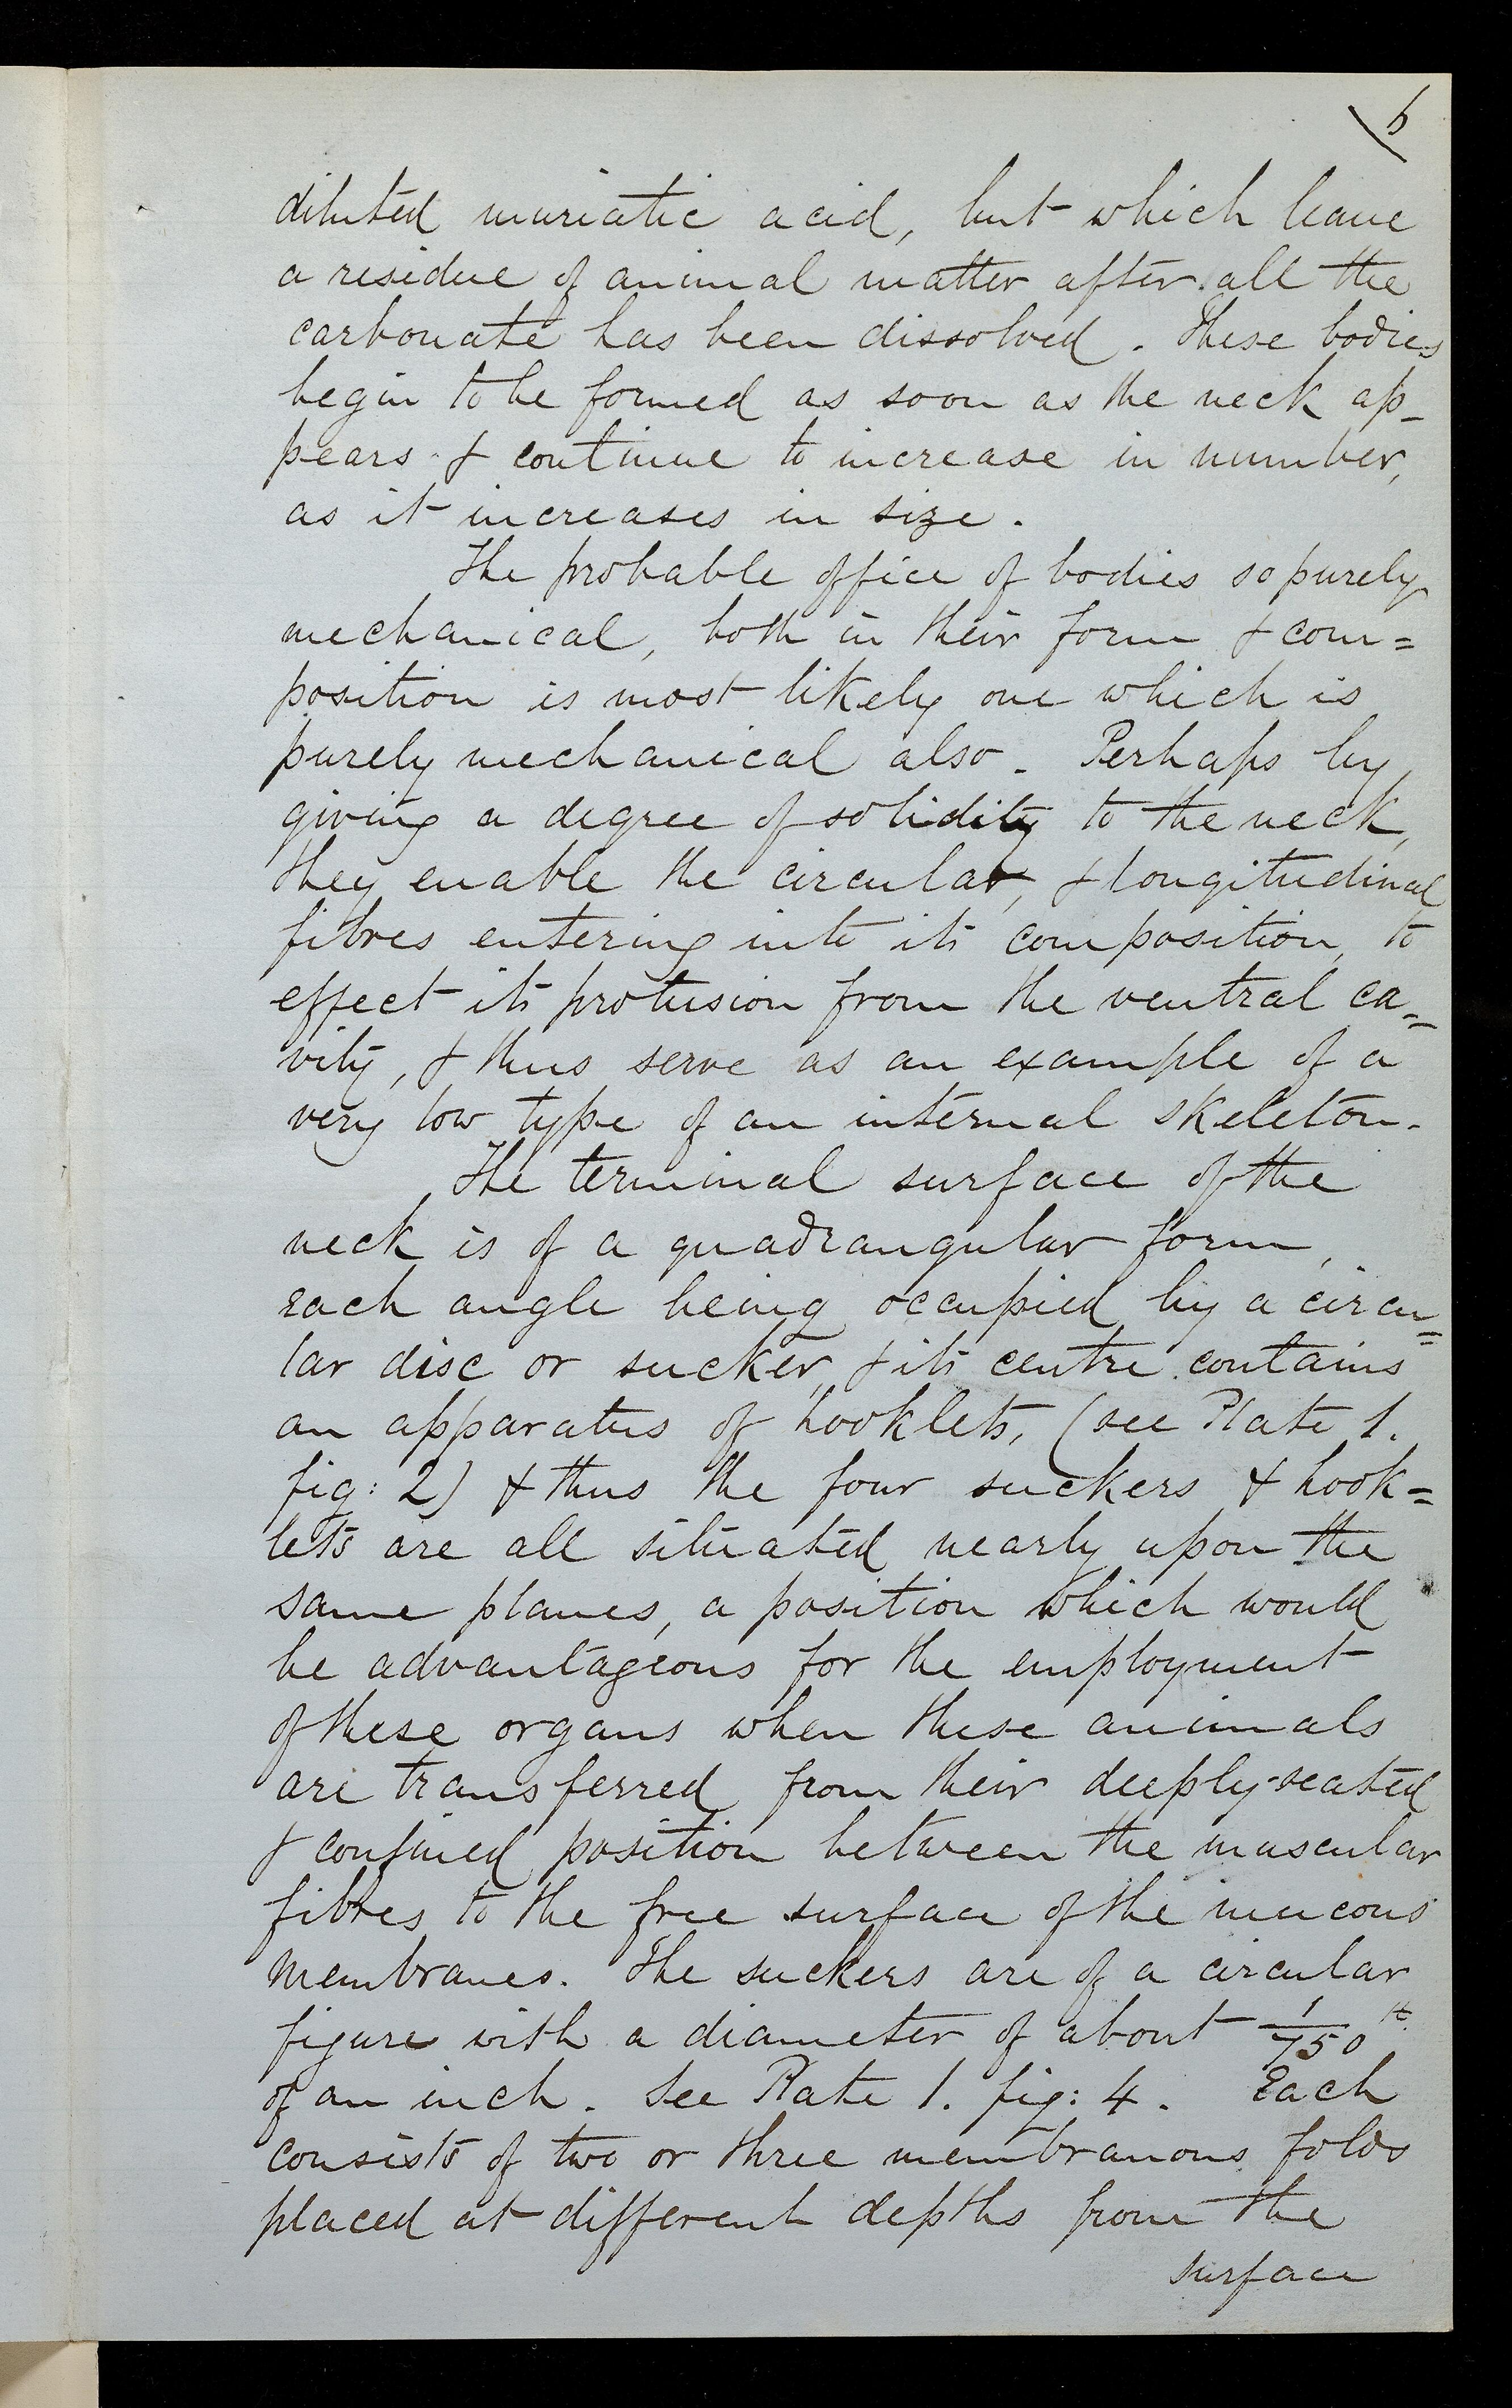 6
diluted muriatic acid, but which leave
a residue of animal matter after all the
carbonate has been dissolved. These bodies
begin to be formed as soon as the neck ap-
pears & continue to increase in number,
as it increases in size.
The probable office of bodies so purely
mechanical, both in their form & com=
position is most likely one which is
purely mechanical also. Perhaps by
giving a degree of solidity to the neck,
they enable the circular, & longitudinal
fibres entering into its composition, to
effect its protusion from the ventral ca=
vity, & thus serve as an example of a
very low type of an internal skeleton.
The terminal surface of the
neck is of a quadrangular form,
each angle being occupied by a circu=
lar disc or sucker, & its centre contains
an apparatus of hooklets, (see Plate 1.
fig: 2) & thus the four suckers & hook=
lets are all situated nearly upon the
same planes, a position which would
be advantageous for the employment
of these organs when these animals
are transferred from their deeply-seated
& confined position between the muscular
fibres to the free surface of the mucous
membranes. The suckers are of a circular
figure with a diameter of about 1/750th
of an inch. See Plate 1. fig: 4. Each
consists of two or three membranous folds
placed at different depths from the
surface